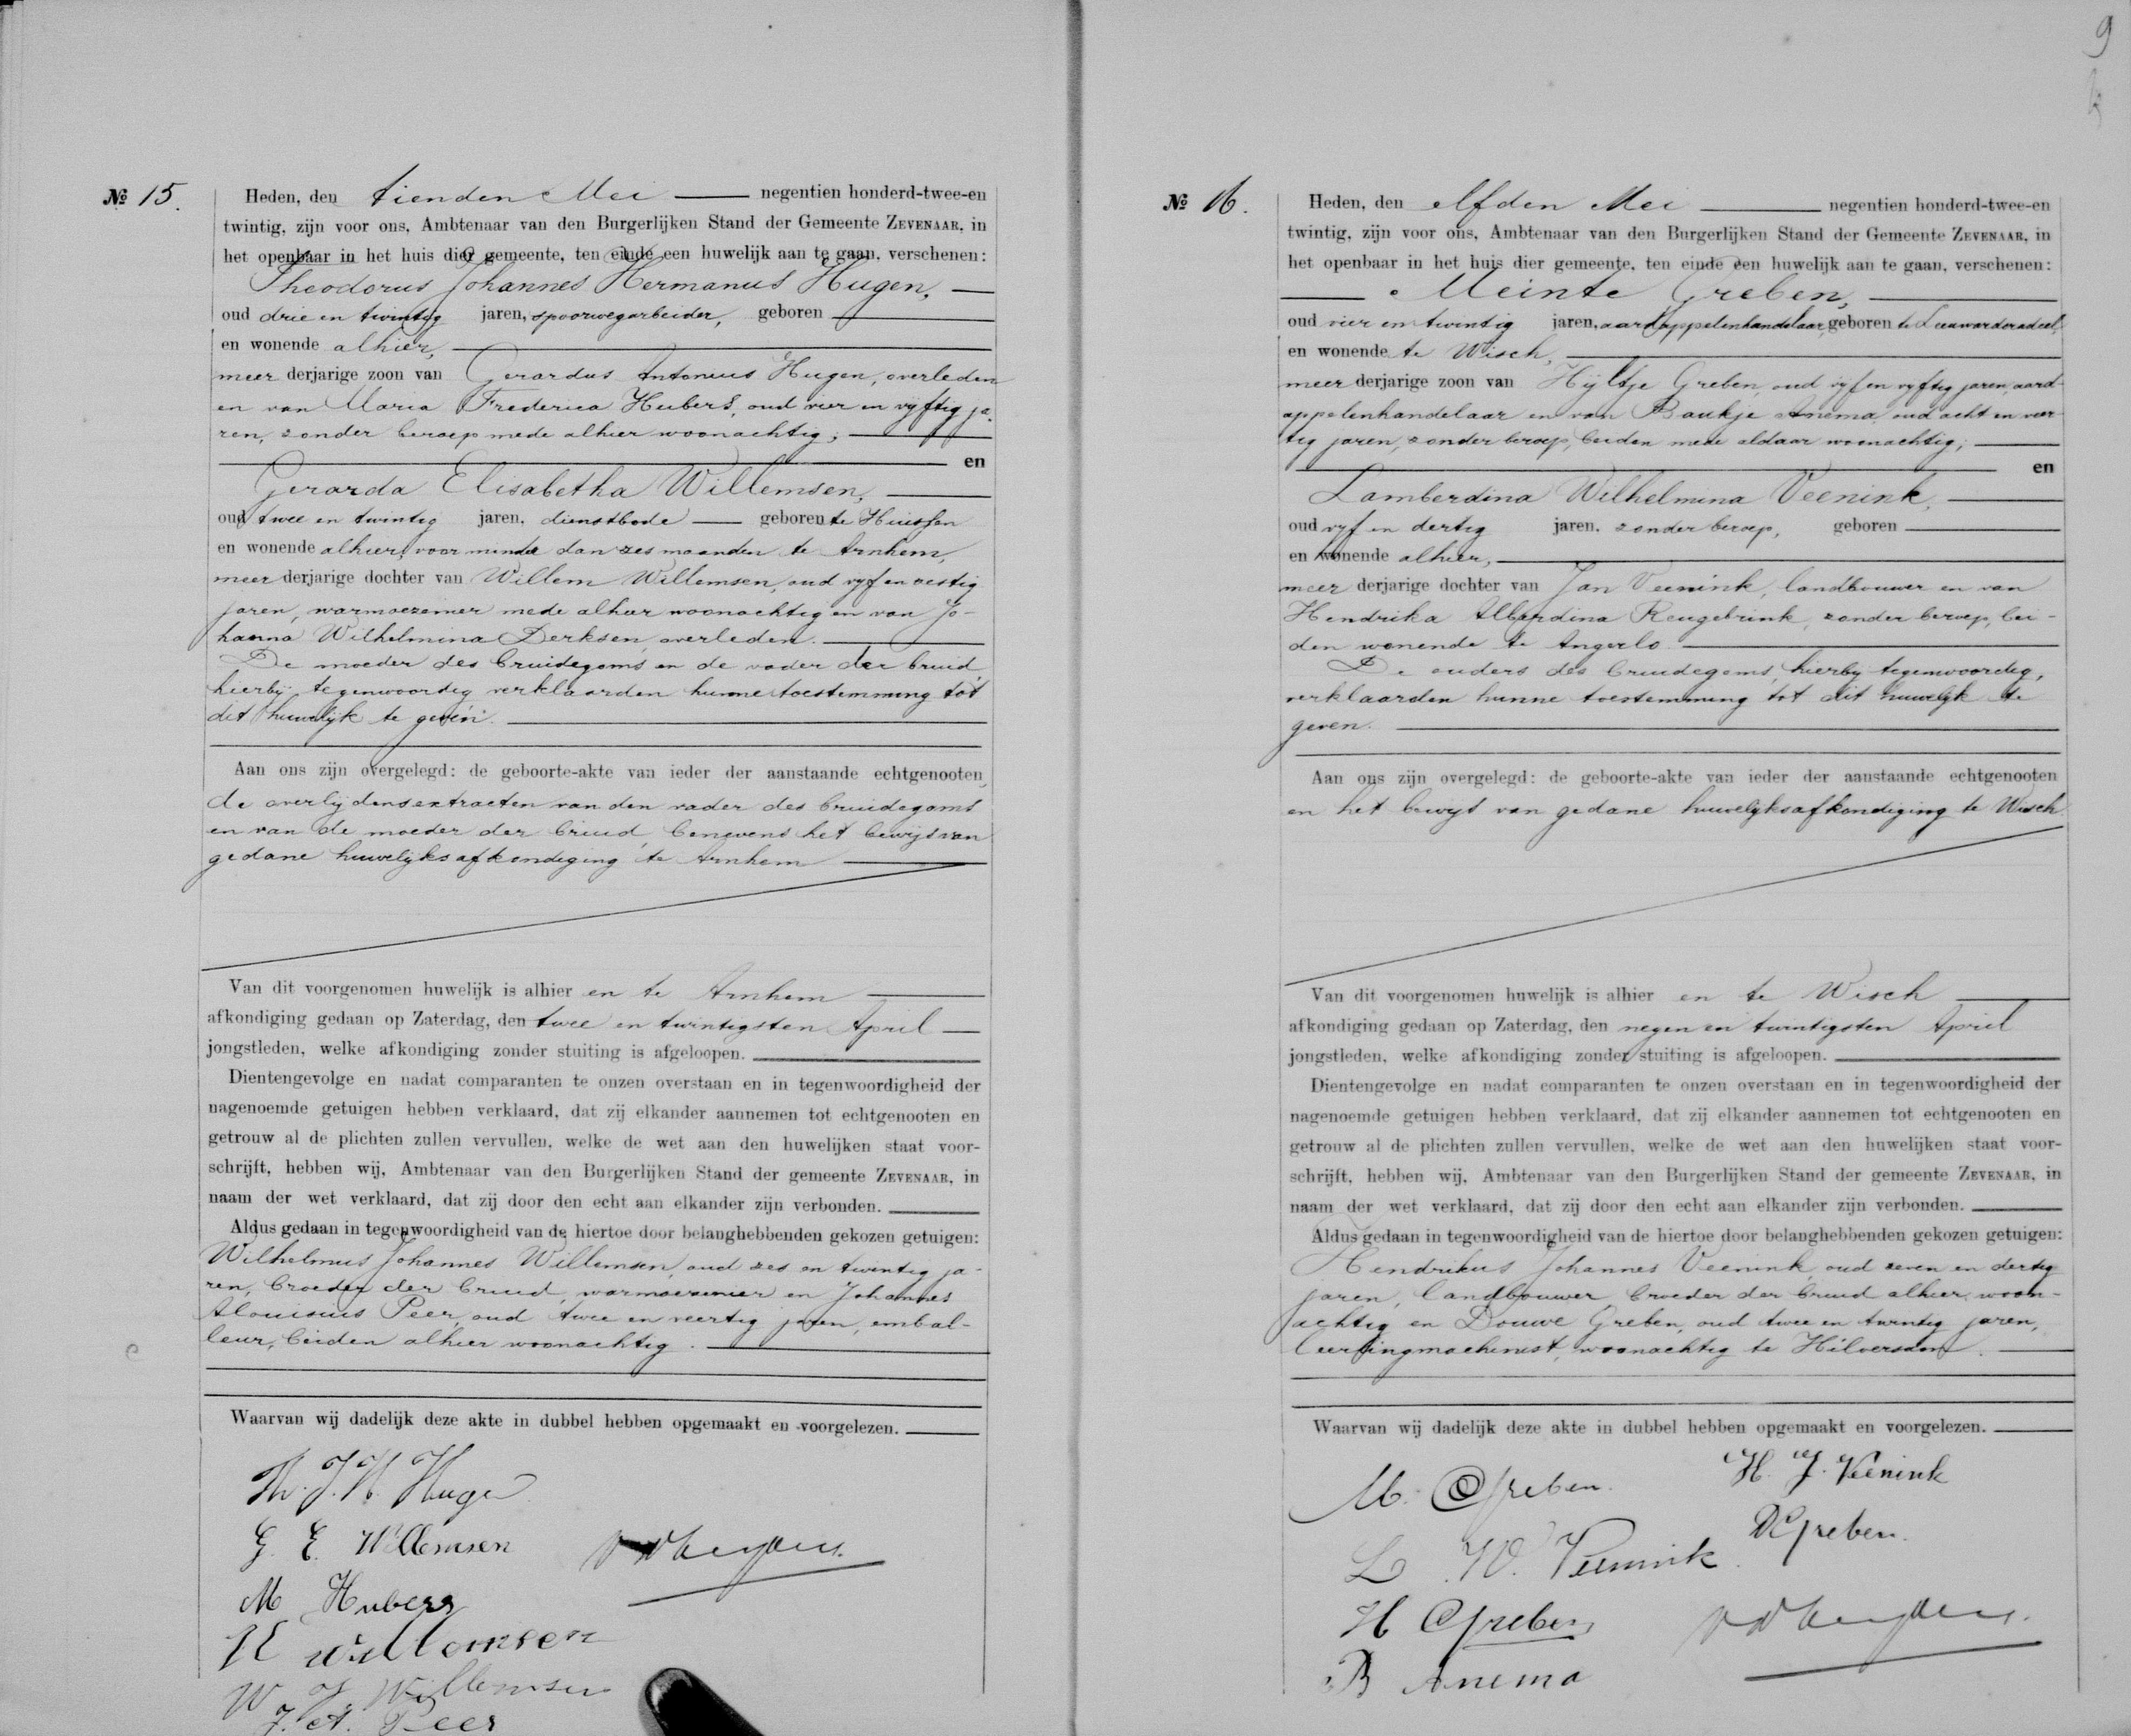 № 15.
Heden, den tienden Mei negentien honderd-twee-en
twintig, zijn voor ons, Ambtenaar van den Burgerlijken Stand der Gemeente ZEVENAAR, in
het openbaar in het huis dier gemeente, ten einde een huwelijk aan te gaan, verschenen:
Theodorus Johannes Hermanus Hugen,
oud drie en twintig jaren, spoorwegarbeider, geboren
en wonende alhier,
meerderjarige zoon van Gerardus Antonius Hugen, overleden
en van Maria Frederica Hubers, oud vier en vijftig ja-
ren, zonder beroep mede alhier woonachtig;
en
Gerarda Elisabetha Willemsen,
oud twee en twintig jaren, dienstbode geboren te Huissen
en wonende alhier, voor minder dan zes maanden te Arnhem,
meerderjarige dochter van Willem Willemsen, oud vijf en zestig
jaren, warmoezenier mede alhier woonachtig en van Jo-
hanna Wilhelmina Derksen, overleden.
De moeder des bruidegoms en de vader der bruid,
hierbij tegenwoordig verklaarden hunne toestemming tot
dit huwelijk te geven.
Aan ons zijn overgelegd: de geboorte-akte van ieder der aanstaande echtgenooten,
de overlijdensextracten van den vader des bruidegoms
en van de moeder der bruid, benevens het bewijs van
gedane huwelijksafkondiging te Arnhem
Van dit voorgenomen huwelijk is alhier en te Arnhem
afkondiging gedaan op Zaterdag, den twee en twintigsten April
jongstleden, welke afkondiging zonder stuiting is afgeloopen.
Dientengevolge en nadat comparanten te onzen overstaan en in tegenwoordigheid der
nagenoemde getuigen hebben verklaard, dat zij elkander aannemen tot echtgenooten en
getrouw al de plichten zullen vervullen, welke de wet aan den huwelijken staat voor-
schrijft, hebben wij, Ambtenaar van den Burgerlijken Stand der gemeente ZEVENAAR, in
naam der wet verklaard, dat zij door den echt aan elkander zijn verbonden.
Aldus gedaan in tegenwoordigheid van de hiertoe door belanghebbenden gekozen getuigen:
Wilhelmus Johannes Willemsen, oud zes en twintig ja-
ren, broeder der bruid, warmoezenier en Johannes
Alouisius Peer, oud twee en veertig jaren, embal-
leur, beiden alhier woonachtig.
Waarvan wij dadelijk deze akte in dubbel hebben opgemaakt en voorgelezen.
Th. J. H. Hugen
G. E. Willemsen
M Hubers
W Willemsen
W J Willemsen
J. A. Peer
9
№ 16.
Heden, den elfden Mei negentien honderd-twee-en
twintig, zijn voor ons, Ambtenaar van den Burgerlijken Stand der Gemeente ZEVENAAR, in
het openbaar in het huis dier gemeente, ten einde een huwelijk aan te gaan, verschenen:
Meinte Greben,
oud vier en twintig jaren, aardappelenhandelaar, geboren te Leeuwarderadeel,
en wonende te Wisch,
meerderjarige zoon van Hijltje Greben, oud vijf en vijftig jaren, aard-
appelenhandelaar en van Baukje Anema, oud acht en veer-
tig jaren, zonder beroep, beiden mede aldaar woonachtig;
en
Lamberdina Wilhelmina Veenink,
oud vijf en dertig jaren, zonder beroep, geboren
en wonende alhier,
meerderjarige dochter van Jan Veenink, landbouwer en van
Hendrika Albardina Reugebrink, zonder beroep, bei-
den wonende te Angerlo.
De ouders des bruidegoms, hierbij tegenwoordig,
verklaarden hunne toestemming tot dit huwelijk te
geven.
Aan ons zijn overgelegd: de geboorte-akte van ieder der aanstaande echtgenooten
en het bewijs van gedane huwelijksafkondiging te Wisch
Van dit voorgenomen huwelijk is alhier en te Wisch
afkondiging gedaan op Zaterdag, den negen en twintigsten April
jongstleden, welke afkondiging zonder stuiting is afgeloopen.
Dientengevolge en nadat comparanten te onzen overstaan en in tegenwoordigheid der
nagenoemde getuigen hebben verklaard, dat zij elkander aannemen tot echtgenooten en
getrouw al de plichten zullen vervullen, welke de wet aan den huwelijken staat voor-
schrijft, hebben wij, Ambtenaar van den Burgerlijken Stand der gemeente ZEVENAAR, in
naam der wet verklaard, dat zij door den echt aan elkander zijn verbonden.
Aldus gedaan in tegenwoordigheid van de hiertoe door belanghebbenden gekozen getuigen:
Hendrikus Johannes Veenink, oud zeven en dertig
jaren, landbouwer broeder der bruid alhier woon-
achtig en Douwe Greben, oud twee en twintig jaren,
leerlingmachinist, woonachtig te Hilversum.
Waarvan wij dadelijk deze akte in dubbel hebben opgemaakt en voorgelezen.
M. Greben.
H. J. Veenink
L. W. Veenink
D Greben.
H Greben
B Anema